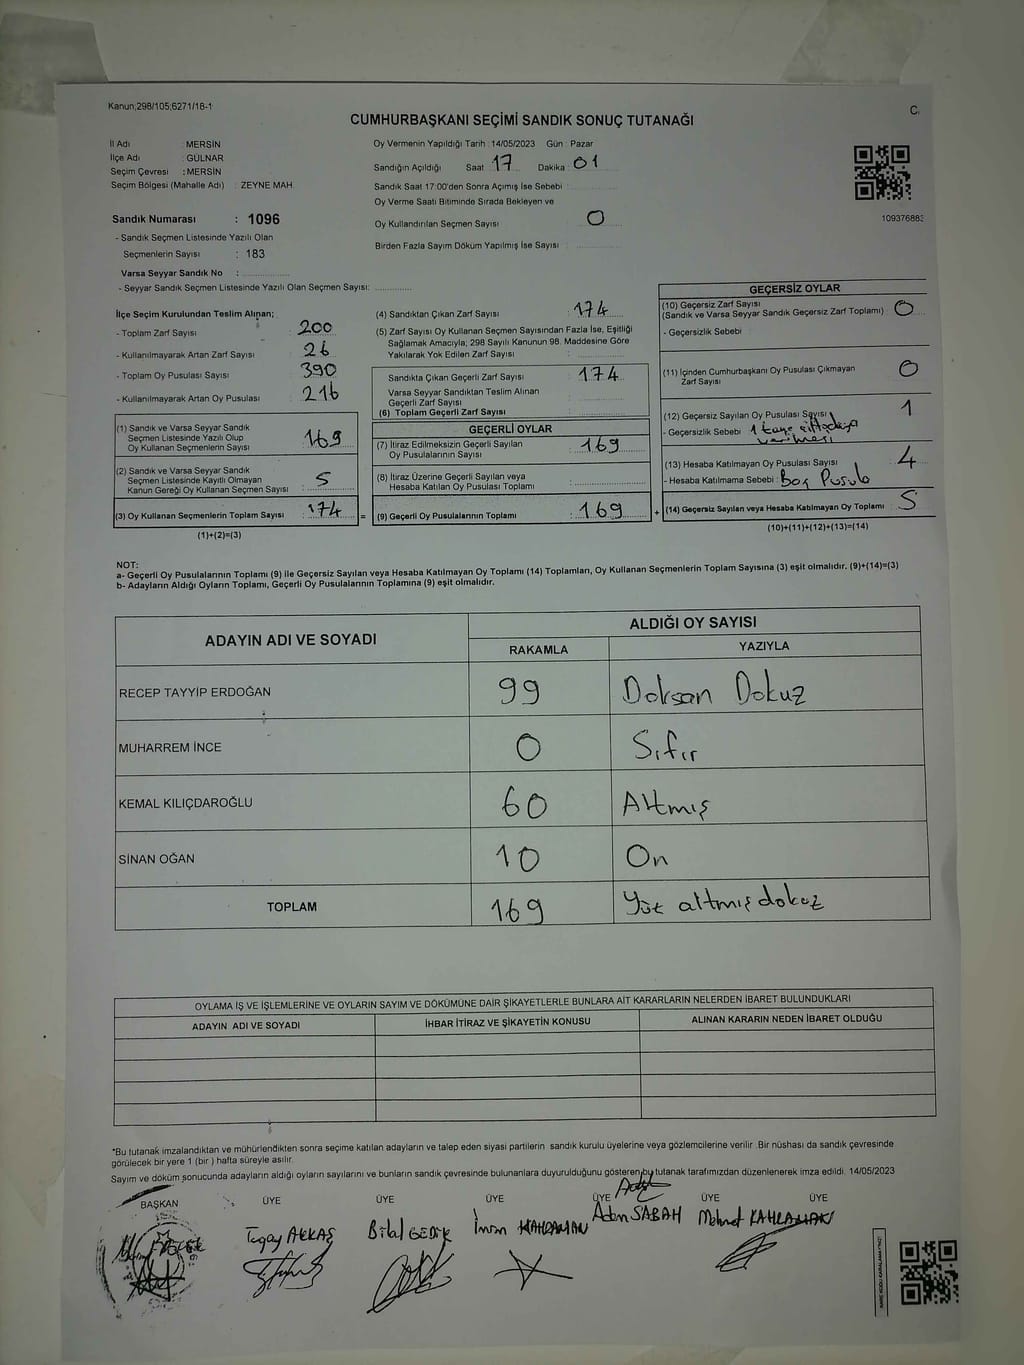 Kanun;298/105;6271/18-1
C.
CUMHURBAŞKANI SEÇİMİ SANDIK SONUÇ TUTANAĞI
İl Adı : MERSİN
İlçe Adı : GÜLNAR
Seçim Çevresi : MERSİN
Seçim Bölgesi (Mahalle Adı) : ZEYNE MAH.
Oy Vermenin Yapıldığı Tarih : 14/05/2023 Gün : Pazar
Sandığın Açıldığı Saat 17 Dakika : 01
Sandık Saat 17:00'den Sonra Açımış İse Sebebi :
Oy Verme Saati Bitiminde Sırada Bekleyen ve
Oy Kullandırılan Seçmen Sayısı : 0
Birden Fazla Sayım Döküm Yapılmış İse Sayısı :
109376883
Sandık Numarası : 1096
- Sandık Seçmen Listesinde Yazılı Olan
Seçmenlerin Sayısı : 183
Varsa Seyyar Sandık No :
- Seyyar Sandık Seçmen Listesinde Yazılı Olan Seçmen Sayısı:
İlçe Seçim Kurulundan Teslim Alınan;
- Toplam Zarf Sayısı : 200
- Kullanılmayarak Artan Zarf Sayısı : 26
- Toplam Oy Pusulası Sayısı : 390
- Kullanılmayarak Artan Oy Pusulası : 216
(1) Sandık ve Varsa Seyyar Sandık
Seçmen Listesinde Yazılı Olup
Oy Kullanan Seçmenlerin Sayısı : 169
(2) Sandık ve Varsa Seyyar Sandık
Seçmen Listesinde Kayıtlı Olmayan
Kanun Gereği Oy Kullanan Seçmen Sayısı : 5
(3) Oy Kullanan Seçmenlerin Toplam Sayısı : 174 =
(1)+(2)=(3)
(4) Sandıktan Çıkan Zarf Sayısı : 174
(5) Zarf Sayısı Oy Kullanan Seçmen Sayısından Fazla İse, Eşitliği
Sağlamak Amacıyla; 298 Sayılı Kanunun 98. Maddesine Göre
Yakılarak Yok Edilen Zarf Sayısı :
Sandıkta Çıkan Geçerli Zarf Sayısı : 174
Varsa Seyyar Sandıktan Teslim Alınan
Geçerli Zarf Sayısı :
(6) Toplam Geçerli Zarf Sayısı :
GEÇERLİ OYLAR
(7) İtiraz Edilmeksizin Geçerli Sayılan
Oy Pusulalarının Sayısı : 169
(8) İtiraz Üzerine Geçerli Sayılan veya
Hesaba Katılan Oy Pusulası Toplamı :
(9) Geçerli Oy Pusulalarının Toplamı : 169 +
GEÇERSİZ OYLAR
(10) Geçersiz Zarf Sayısı
(Sandık ve Varsa Seyyar Sandık Geçersiz Zarf Toplamı) : 0
- Geçersizlik Sebebi :
(11) İçinden Cumhurbaşkanı Oy Pusulası Çıkmayan
Zarf Sayısı : 0
(12) Geçersiz Sayılan Oy Pusulası Sayısı : 1
- Geçersizlik Sebebi : 1 tane
(13) Hesaba Katılmayan Oy Pusulası Sayısı : 4
- Hesaba Katılmama Sebebi : Boş Pusula
(14) Geçersiz Sayılan veya Hesaba Katılmayan Oy Toplamı : 5
(10)+(11)+(12)+(13)=(14)
NOT:
a- Geçerli Oy Pusulalarının Toplamı (9) ile Geçersiz Sayılan veya Hesaba Katılmayan Oy Toplamı (14) Toplamları, Oy Kullanan Seçmenlerin Toplam Sayısına (3) eşit olmalıdır. (9)+(14)=(3)
b- Adayların Aldığı Oyların Toplamı, Geçerli Oy Pusulalarının Toplamına (9) eşit olmalıdır.
ADAYIN ADI VE SOYADI
ALDIĞI OY SAYISI
RAKAMLA YAZIYLA
RECEP TAYYİP ERDOĞAN 99 Doksan Dokuz
MUHARREM İNCE 0 Sıfır
KEMAL KILIÇDAROĞLU 60 Altmış
SİNAN OĞAN 10 On
TOPLAM 169 Yüz altmış dokuz
OYLAMA İŞ VE İŞLEMLERİNE VE OYLARIN SAYIM VE DÖKÜMÜNE DAİR ŞİKAYETLERLE BUNLARA AİT KARARLARIN NELERDEN İBARET BULUNDUKLARI
ADAYIN ADI VE SOYADI İHBAR İTİRAZ VE ŞİKAYETİN KONUSU ALINAN KARARIN NEDEN İBARET OLDUĞU
*Bu tutanak imzalandıktan ve mühürlendikten sonra seçime katılan adayların ve talep eden siyasi partilerin sandık kurulu üyelerine veya gözlemcilerine verilir. Bir nüshası da sandık çevresinde
görülecek bir yere 1 (bir ) hafta süreyle asılır.
Sayım ve döküm sonucunda adayların aldığı oyların sayılarını ve bunların sandık çevresinde bulunanlara duyurulduğunu gösteren bu tutanak tarafımızdan düzenlenerek imza edildi. 14/05/2023
BAŞKAN ÜYE ÜYE ÜYE ÜYE ÜYE ÜYE
Tugay AKKAŞ Bilal GEDİK İmran KAHRAMAN Adem SABAH Mehmet KAHRAMAN